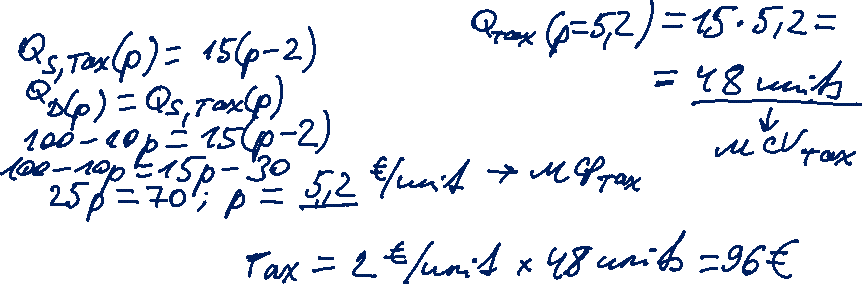 Q_S,Tax(p) = 15(p-2)
Q_D(p) = Q_S,Tax(p)
100-10p = 15(p-2)
100-10p = 15p-30
25p = 70; p = 5,2 €/unit → MCP_Tax
Q_Tax(p=5,2) = 15·5,2 =
= 48 units
↓
MCV_Tax
Tax = 2 €/unit × 48 units = 96 €